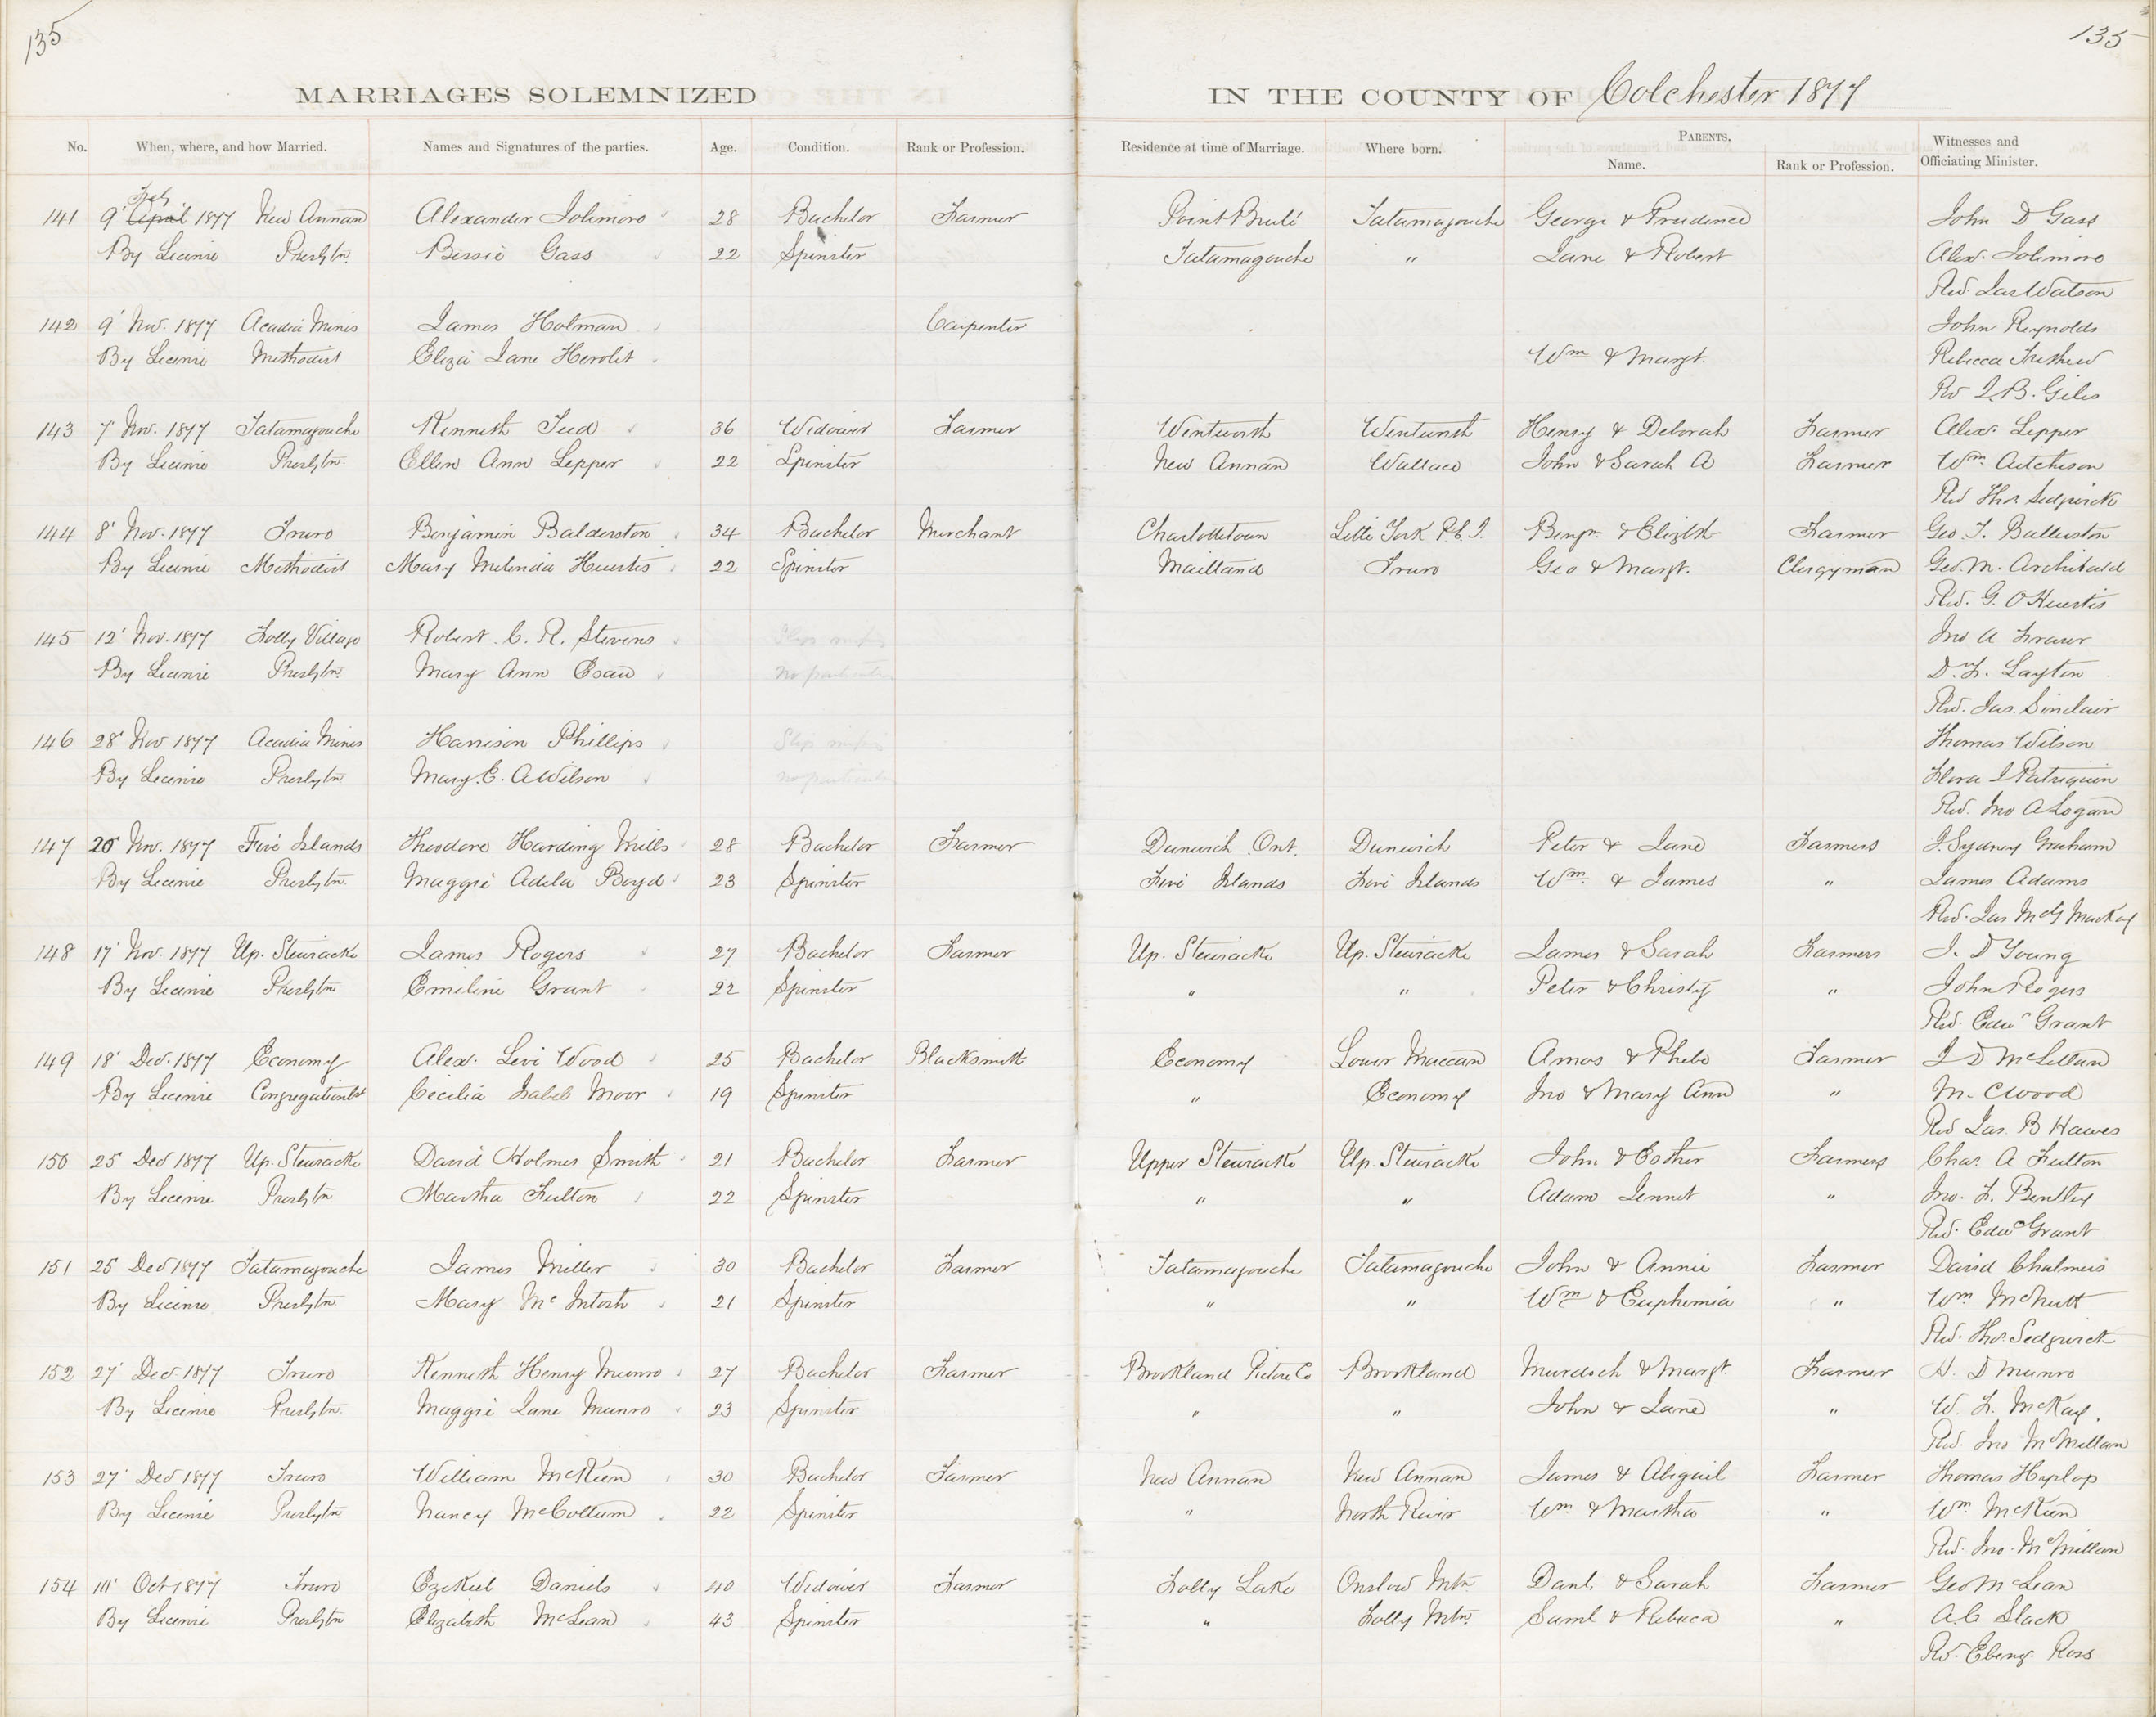 135
135
MARRIAGES SOLEMNIZED IN THE COUNTY OF Colchester 1877
PARENTS.
No. When, where, and how Married. Names and Signatures of the parties. Age. Condition. Rank or Profession. Residence at time of Marriage. Where born. Name. Rank or Profession. Witnesses and Officiating Minister.
Feb
141 9' April 1877 New Annan Alexander Bachelor 28 Farmer Point Brulé Tatamagouche George & Prudence John D Gass
By License Presbtn. Bessie Gass 22 Spinster Tatamagouche " Jane & Robert Alex.
Rev. Jas Watson
142 9' Nov. 1877 Acadia Mines James Holman Carpenter John Reynolds
By License Methodist Eliza Jane Wm & Margt. Rebecca
Rev J. B. Giles
143 7' Nov. 1877 Tatamagouche Kenneth Teed 36 Widower Farmer Wentworth Wentworth Henry & Deborah Farmer Alex. Lepper
By License Presbtn. Ellen Ann Lepper 22 Spinster New Annan Wallace John & Sarah A Farmer Wm. Aitcheson
Rev Thos. Sedgwick
144 8' Nov. 1877 Truro Benjamin Balderston 34 Bachelor Merchant Charlottetown Little York P.E.I. Benjn. & Elizth Farmer Geo. T. Balderston
By License Methodist Mary Melinda Huestis 22 Spinster Maitland Truro Geo & Margt. Clergyman Geo. M. Archibald
Rev. G. O Huestis
145 12' Nov. 1877 Folly Village Robert C. R. Stevens Jno A
By License Presbtn. Mary Ann Esau no particulars D. F. Layton
Rev. Jas. Sinclair
146 28' Nov 1877 Acadia Mines Harrison Phillips Thomas Wilson
By License Presbytn Mary. E. A Wilson no particulars Flora J Patriquin
Rev. Jno A Logan
147 20' Nov. 1877 Five Islands Theodore Harding Mills 28 Bachelor Farmer Dunwich Ont. Dunwich Peter & Jane Farmers J. Sydney Graham
By License Presbtn. Maggie Adela Boyd 23 Spinster Five Islands Five Islands Wm. & James " James Adams
Rev. Jas McG MacKay
148 17' Nov. 1877 Up. Stewiacke James Rogers 27 Bachelor Farmer Up. Stewiacke Up. Stewiacke James & Sarah Farmers J. D Young
By License Presbtn Emiline Grant 22 Spinster " " Peter & Christy " John Rogers
Rev. Edwd Grant
149 18' Dec. 1877 Economy Alex. Levi Wood 25 Bachelor Blacksmith Economy Lower Maccan Amos & Phebe Farmer J D McLellan
By License Congregationlst Cecilia Isabel Moor 19 Spinster " Economy Jno & Mary Ann " M. C Wood
Rev Jas. B Hawes
150 25 Dec 1877 Up. Stewiacke David Holmes Smith 21 Bachelor Farmer Upper Stewiacke Up. Stewiacke John & Esther Farmers Chas. A Fulton
By License Presbtn. Martha Fulton 22 Spinster " " Adam Jennet " Jno. F. Bentley
Rev. Edwd Grant
151 25 Dec 1877 Tatamagouche James Miller 30 Bachelor Farmer Tatamagouche Tatamagouche John & Annie Farmer David Chalmers
By License Presbtn Mary McIntosh 21 Spinster " " Wm & Euphemia " Wm McNutt
Rev. Thos. Sedgwick
152 27' Dec 1877 Truro Kenneth Henry Munro 27 Bachelor Farmer Brookland Pictou Co Brookland Murdoch & Margt. Farmer H. D Munro
By License Presbtn. Maggie Jane Munro 23 Spinster " " John & Jane " W. F. McKay.
Rev. Jno McMillan
153 27' Dec 1877 Truro William McKeen 30 Bachelor Farmer New Annan New Annan James & Abigail Farmer Thomas Hyslop
By License Presbytn Nancy McCollum 22 Spinster " North River Wm & Martha " Wm McKeen
Rev. Jno. McMillan
154 Oct 1877 Truro Ezekiel Daniels 40 Widower Farmer Folly Lake Onslow Mtn. Danl. & Sarah Farmer Geo McLean
By License Presbtn Elizabeth McLean 43 Spinster " Folly Mtn. Saml & Rebecca " A C Slack
Rev. Ebenz. Ross